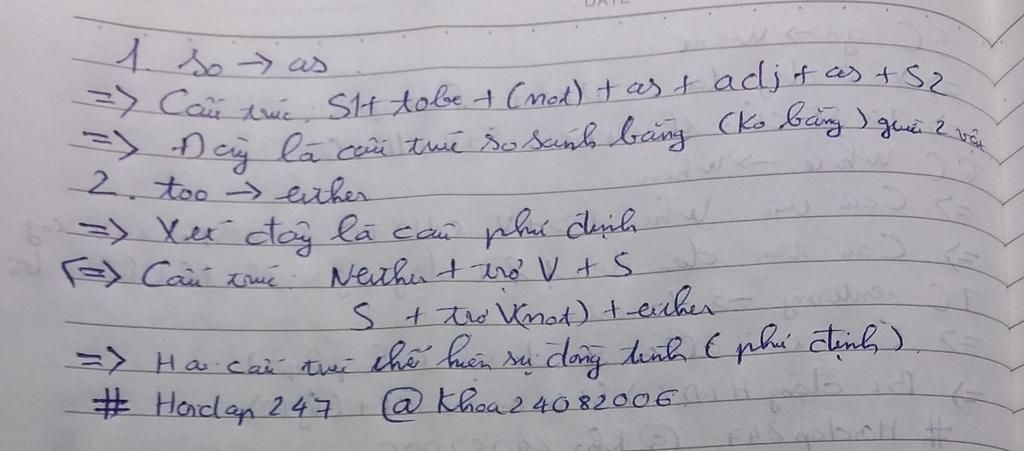 1. so → as
=> Cấu trúc: S1 + tobe + (not) + as + adj + as + S2
=> Đây là cấu trúc so sánh bằng (ko bằng) giữa 2 vật
2. too → either
=> Xét đây là câu phủ định
=> Cấu trúc: Neither + trợ V + S
S + trợ V(not) + either
=> Hai cấu trúc thể hiện sự đồng tình (phủ định)
# Hoidap247 @Khoa24082006